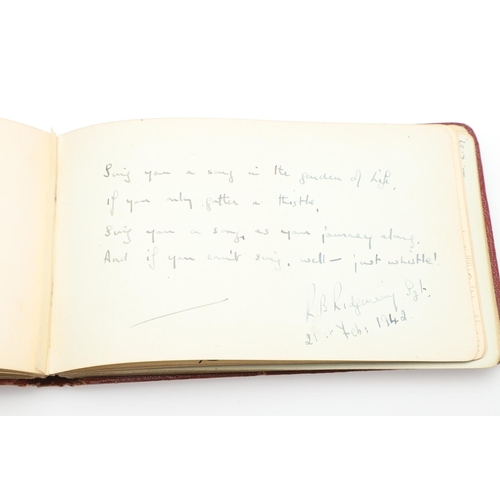 Sing you a song in the garden of life,
If you only gather a thistle,
Sing you a song, as you journey along,
And if you can't sing, well - just whistle!
R B Sgt.
Feb. 1942.